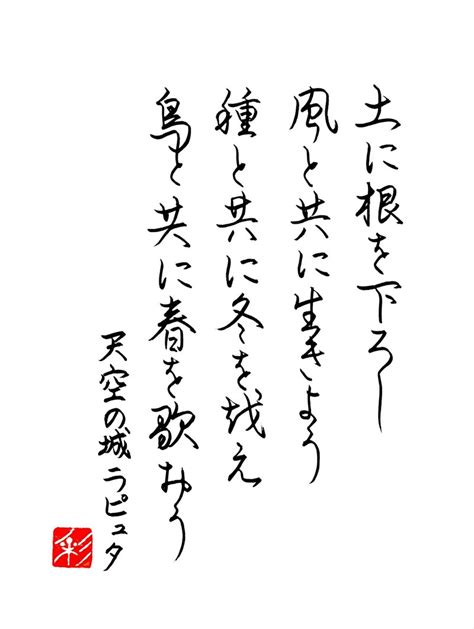 土に根を下ろし
風と共に生きよう
種と共に冬を越え
鳥と共に春を歌おう
天空の城ラピュタ
彩